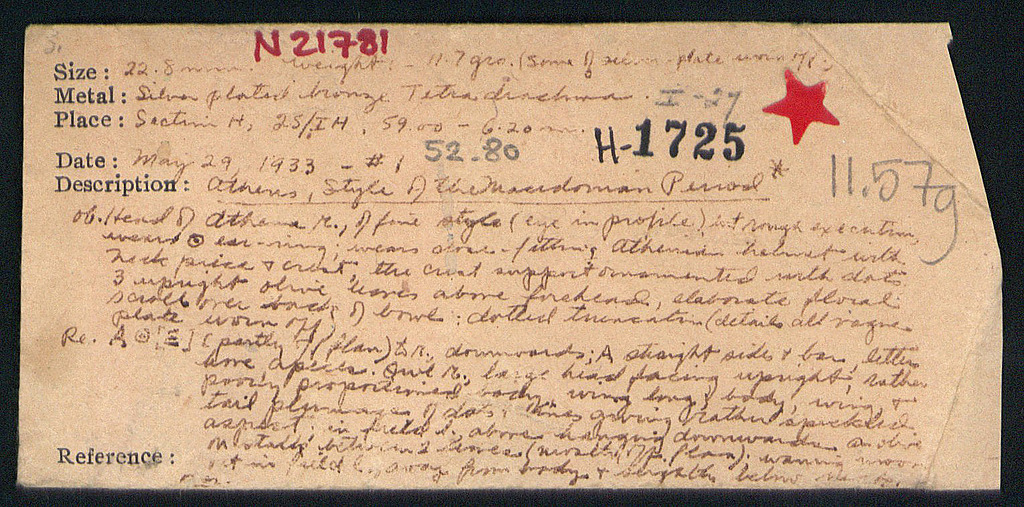 3.
N 21781
Size : 22.8 mm. weight: - 11.7 gro. (Some of silver-plate worn off.)
Metal : Silver plated bronze Tetradrachma. I-27
Place : Section H, 25/IH, 59.00 - 6.20 m. H-1725
52.80
Date : May 29, 1933 - #1
11.57g
Description : Athens, Style of the Macedonian Period *
ob. Head of Athena R., of fine style (eye in profile) but rough execution,
wears ⊙ ear-ring; wears close-fitting Athenian helmet with
neck piece & crest, the crest support ornamented with dots
3 upright olive leaves above forehead, elaborate floral
scroll over back of bowl: dotted truncation (details all vague
plate worn off)
Re. A ⊙ [E] (partly off flan) to R., downwards; A straight sides & bar, letters
have apices. Owl R., large head facing upright, rather
poorly proportioned body, wing long & body, wing, &
tail plumage of dots & lines giving rather speckled
aspect; in field L. above hanging downwards an olive
between 2 leaves (mostly off flan). waning moon
in field L., away from body & slightly below
Reference :